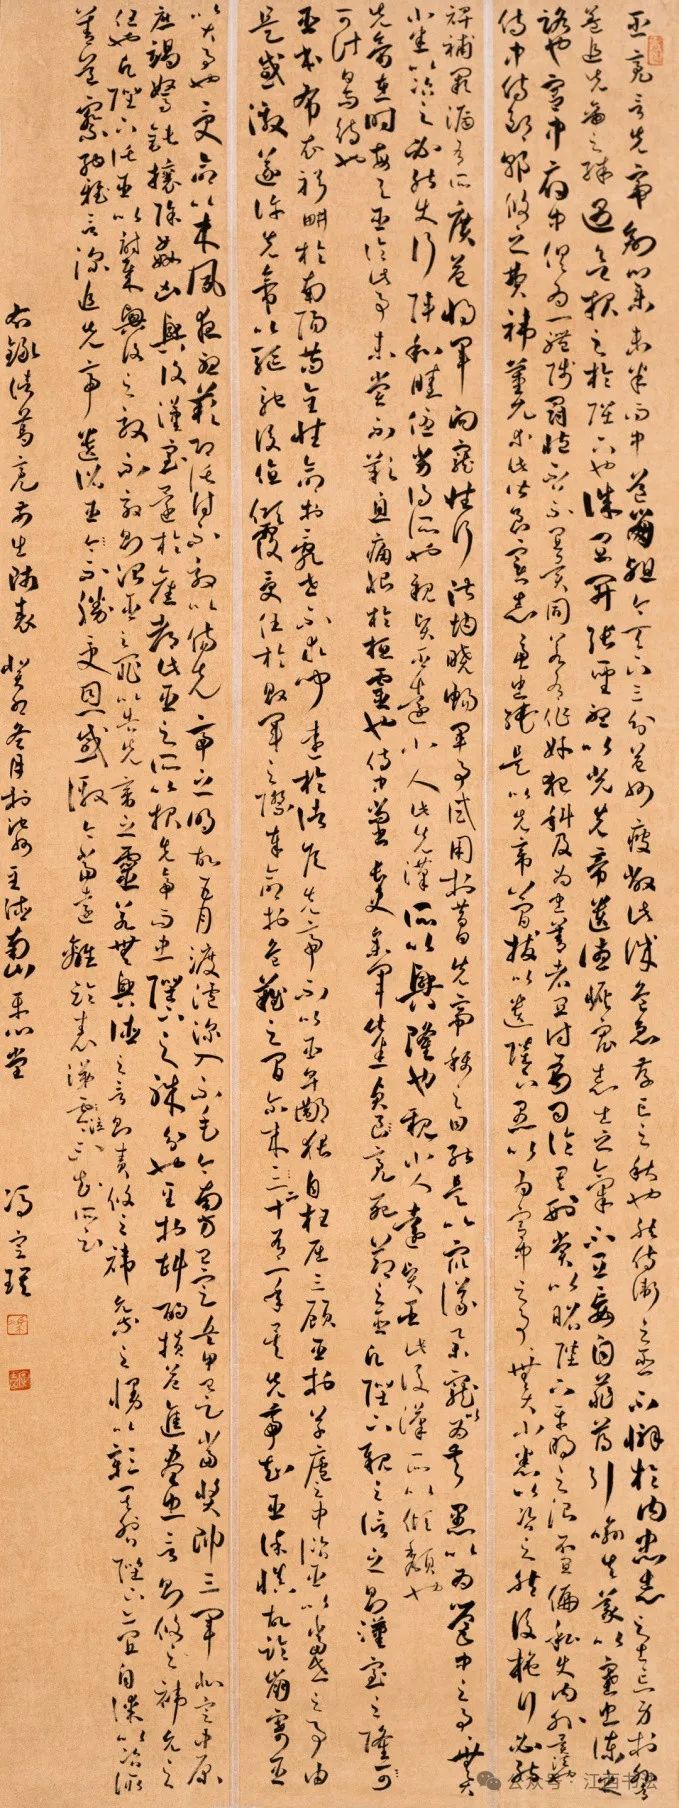 臣亮言先帝創業未半而中道崩殂今天下三分益州疲敝此誠危急存亡之秋也然侍衛之臣不懈於內忠志之士忘身於外者
蓋追先帝之殊遇欲報之於陛下也誠宜開張聖聽以光先帝遺德恢宏志士之氣不宜妄自菲薄引喻失義以塞忠諫之
路也宮中府中俱為一體陟罰臧否不宜異同若有作奸犯科及為忠善者宜付有司論其刑賞以昭陛下平明之理不宜偏私使內外異法也
侍中侍郎郭攸之費禕董允等此皆良實志慮忠純是以先帝簡拔以遺陛下愚以為宮中之事事無大小悉以咨之然後施行必能
裨補闕漏有所廣益將軍向寵性行淑均曉暢軍事試用於昔日先帝稱之曰能是以眾議舉寵以為督愚以為營中之事事無大
小悉以咨之必能使行陣和睦優劣得所也親賢臣遠小人此先漢所以興隆也親小人遠賢臣此後漢所以傾頹也
先帝在時每與臣論此事未嘗不歎息痛恨於桓靈也侍中尚書長史參軍此悉貞亮死節之臣願陛下親之信之則漢室之隆可
可計日而待也
臣本布衣躬耕於南陽苟全性命於亂世不求聞達於諸侯先帝不以臣卑鄙猥自枉屈三顧臣於草廬之中諮臣以當世之事由
是感激遂許先帝以驅馳後值傾覆受任於敗軍之際奉命於危難之間爾來二十有一年矣先帝知臣謹慎故臨崩寄臣
以大事也受命以來夙夜憂歎恐託付不效以傷先帝之明故五月渡瀘深入不毛今南方已定兵甲已足當獎帥三軍北定中原
庶竭駑鈍攘除姦凶興復漢室還於舊都此臣之所以報先帝而忠陛下之職分也至於斟酌損益進盡忠言則攸之禕允之
任也願陛下託臣以討賊興復之效不效則治臣之罪以告先帝之靈若無興德之言則責攸之禕允之慢以彰其咎陛下亦宜自謀以諮諏
善道察納雅言深追先帝遺詔臣不勝受恩感激今當遠離臨表涕零不知所云
右錄諸葛亮前出師表 癸卯冬月於 南山 堂 馮
公众号·江西书法